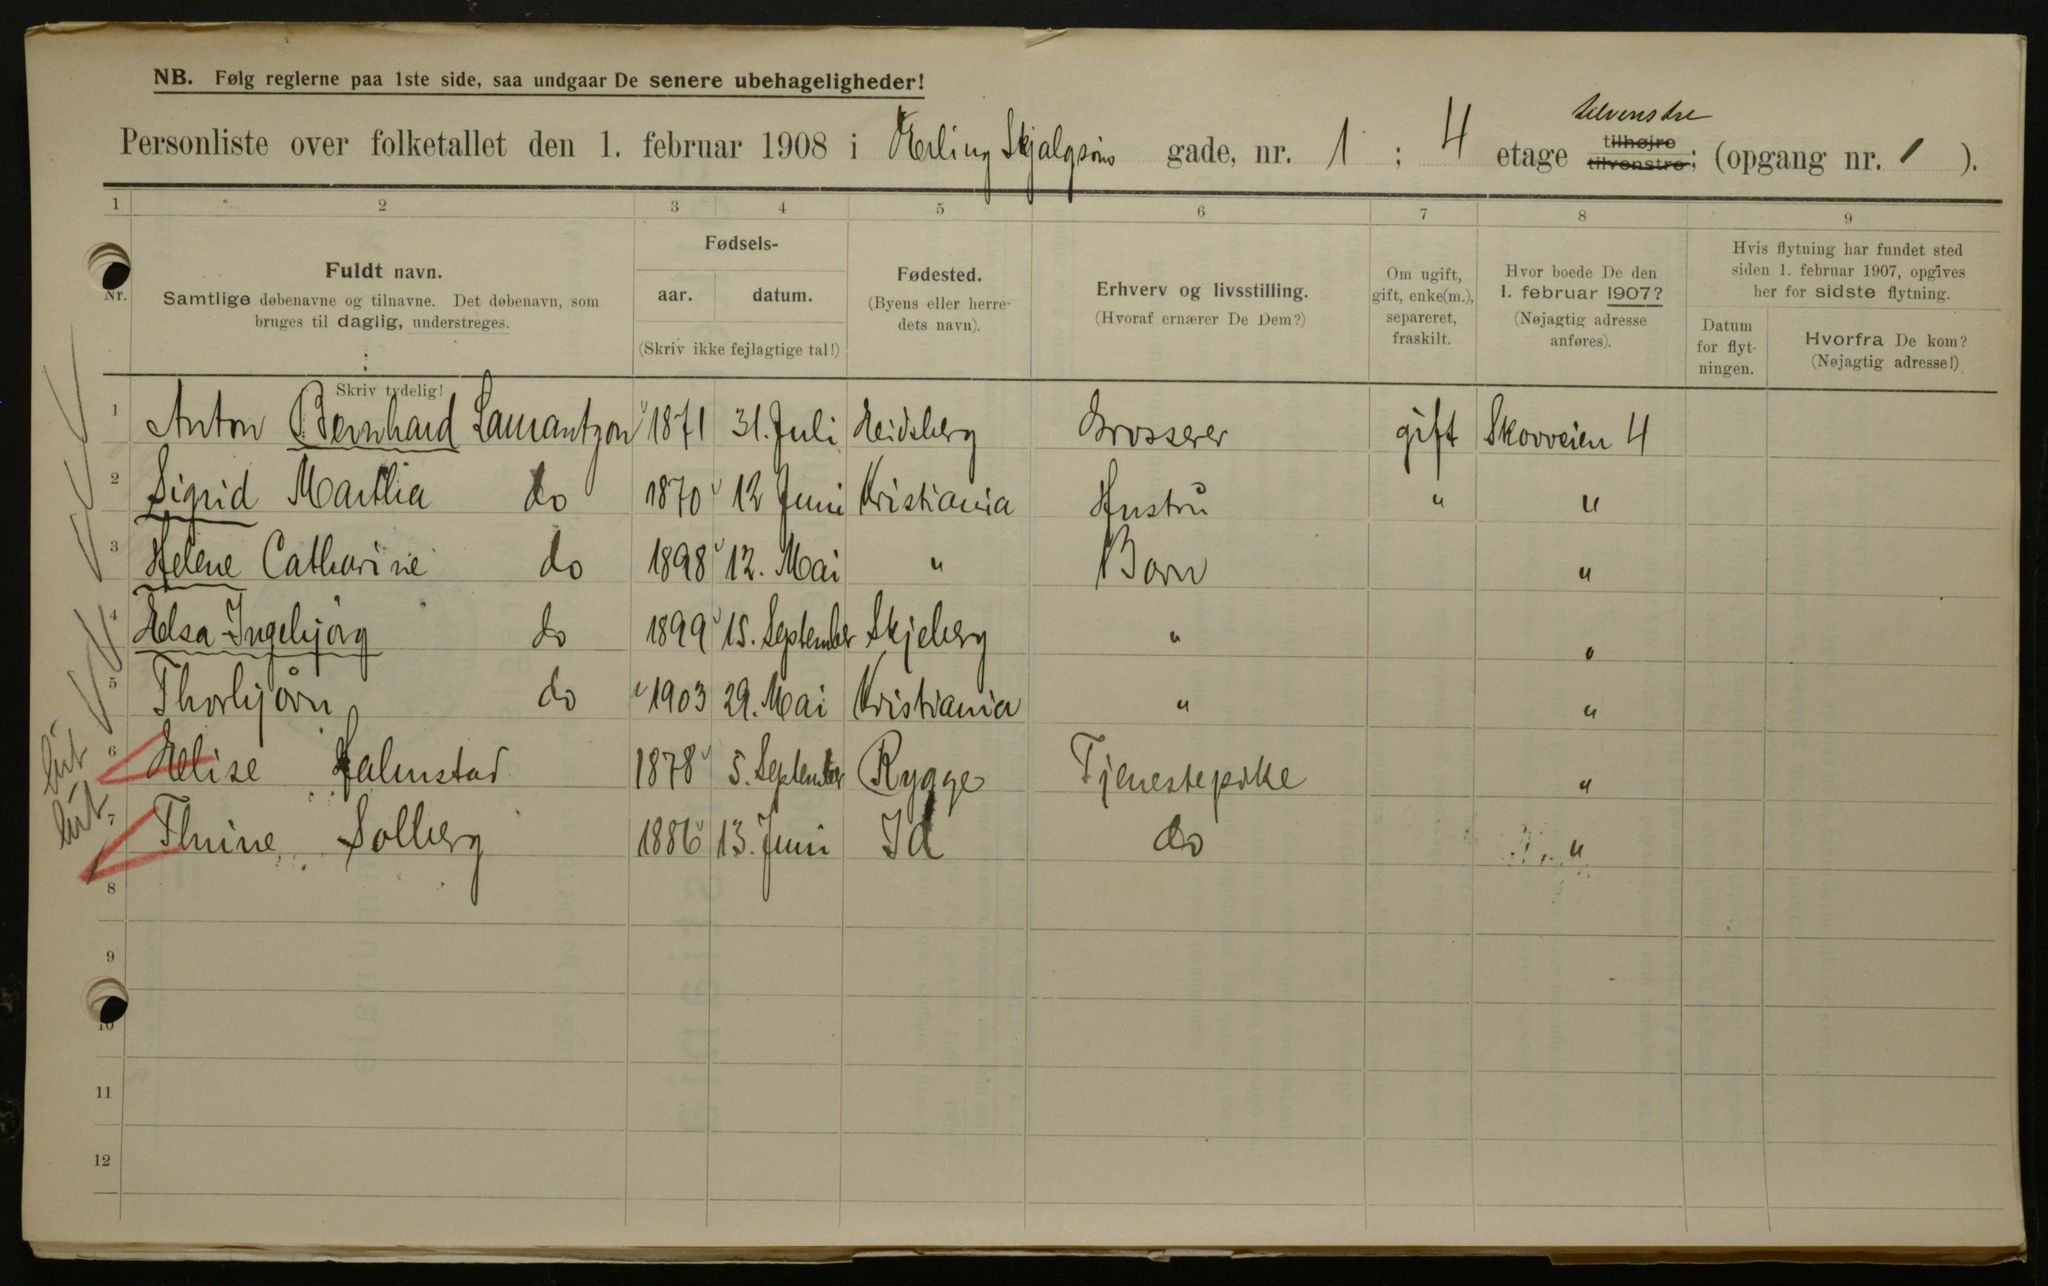 NB. Følg reglerne paa 1ste side, saa undgaar De senere ubehageligheder!
tilvenstre
Personliste over folketallet den 1. februar 1908 i Erling Skjalgsøns gade, nr. 1 ; 4 etage tilhøjre tilvenstre; (opgang nr. 1 ).
1 2 3 4 5 6 7 8 9
Nr.
Fuldt navn.
Samtlige døbenavne og tilnavne. Det døbenavn, som
bruges til daglig, understreges.
Skriv tydelig!
Fødsels-
aar. datum.
(Skriv ikke fejlagtige tal!)
Fødested.
(Byens eller herre-
dets navn).
Erhverv og livsstilling.
(Hvoraf ernærer De Dem?)
Om ugift,
gift, enke(m.),
separeret,
fraskilt.
Hvor boede De den
1. februar 1907?
(Nøjagtig adresse
anføres).
Hvis flytning har fundet sted
siden 1. februar 1907, opgives
her for sidste flytning.
Datum
for flyt-
ningen.
Hvorfra De kom?
(Nøjagtig adresse!)
1 Anton Bernhard Laurantzon 1871 31. Juli Eidsberg Grosserer gift Skovveien 4
2 Sigrid Marthia do 1870 12 Juni Kristiania Hustru " "
3 Helene Catharine do 1898 12. Mai " Barn "
4 Elsa Ingebjörg do 1899 15. September Skjeberg " "
5 Thorbjörn do 1903 29. Mai Kristiania " "
6 Elise Halmstad 1878 5. September Rygge Tjenestepike "
7 Thrine Solberg 1886 13. Juni Id do "
8
9
10
11
12